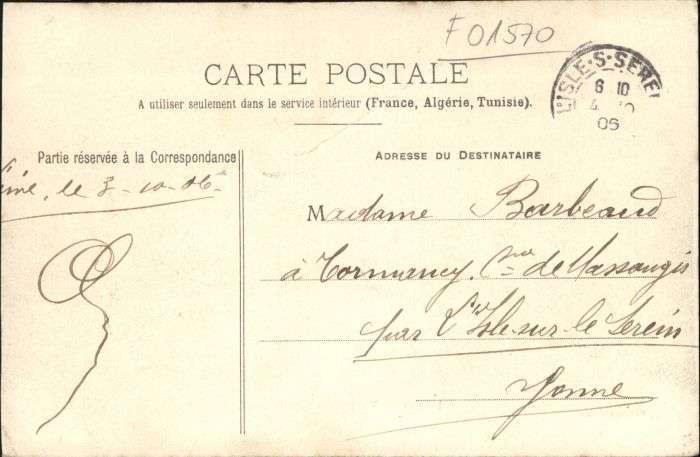 F 01570
CARTE POSTALE
A utiliser seulement dans le service intérieur (France, Algérie, Tunisie).
L'ISLE-S-SEREI
6 10
4 10
06
Partie réservée à la Correspondance
le 3-10-06
ADRESSE DU DESTINATAIRE
Madame Barbeaud
à Tormancy, Cne de Massangis
par L'Isle-sur-le Serein
Yonne